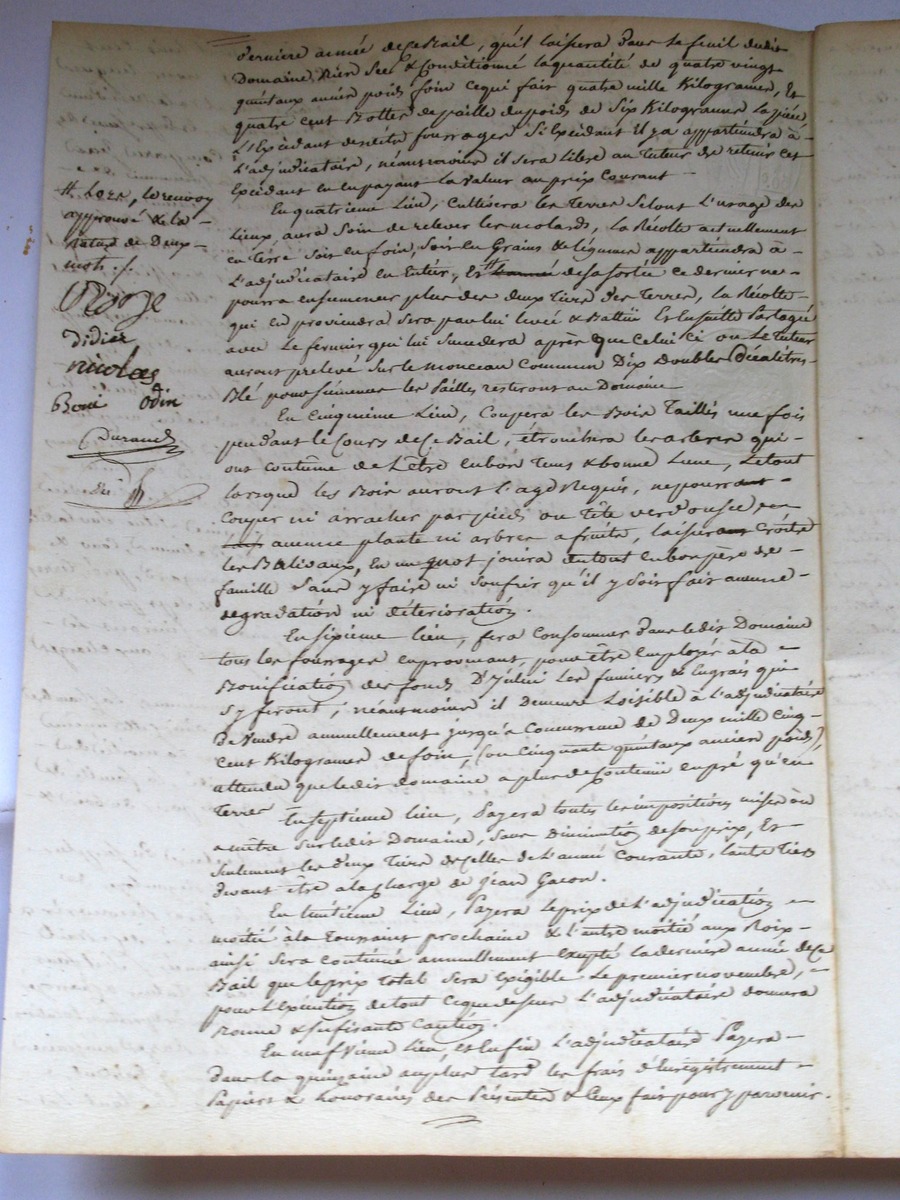 derniere année de ce Bail, qu'il laissera dans le fenil dudit
Domaine, Bien Sec & Conditionné la quantité de quatre vingt
quintaux ancien poids foin ce qui fait quatre mille Kilogrames, Et
quatre cent Bottes de paille du poids de Six Kilogrames la pièce
L'Excédant desdits fourrages Si Excédant Il y a appartiendra à
L'adjudicataire, néantmoins il sera libre au Tuteur de retenir cet
Excédant en en payant la valeur au prix Courant
En quatrieme Lieu, Cultivera les Terres Selons L'usage des
Lieux, aura Soin de relever les molards, la Récolte actuellement
en Terre Soit en foin, Soit en Grains & légumes appartiendra à
L'adjudicataire en Entier, Et # de sa Sortie ce dernier ne
pourra ensemencer plus des deux Tiers des Terres, la Récolte
qui en proviendra Sera par lui levée & Battüe Et Ensuitte Partagée
avec Le fermier qui lui Succedera après que Celui Ci ou Le Tuteur
auront prelevé Sur le monceau Commun Dix Doubles Décalitres
Blé pour Semence les Pailles resteront au Domaine
En Cinquieme Lieu, Coupera les Bois Taillis une fois
pendant le Cours de Ce Bail, étronchera les arbres qui
ont coutume de L'être en bon Tems & bonne Lune, Le tout
lorsque les Bois auront L'age Requis, ne pourra
Couper ni arracher par pieds ou Tête verd ou sec
aucune plante ni arbres a fruits, laissera Croitre
les Baliveaux, En un mot jouira du tout en bon père de
famille Sans y faire ni Soufrir qu'il y Soit fait aucune
degradation ni détérioration.
En Sixieme lieu, fera Consommer dans ledit Domaine
tous les fourrages en provenant, pour être Employés à la
Bonification des fonds D'Iyclui les fumiers & Engrais qui
S'y feront; néantmoins il Demeure Loisible à L'adjudicataire
De Vendre annuellement jusqu'a Concurrence de Deux mille Cinq
Cent Kilogrames de foin, (ou Cinquante quintaux ancien poids),
attendu que ledit domaine a plus de Contenüe en pré qu'en
Terres
En Septieme lieu, Payera toutes les impositions mises ou
a mettre Sur ledit Domaine, Sans Diminution de Son prix, Et
Seulement les deux Tiers de Celles de L'année Courante, l'autre Tiers
devant être a la Charge de Jean Gacon.
En huitieme Lieu, Payera le prix de L'adjudication
moitié à la Toussaint prochaine & L'autre moitié aux Roix
ainsi Sera continué annuellement Excepté la derniere année de Ce
Bail que le prix Total Sera Exigible le premier novembre,
pour L'Exécution de tout Ce que dessus L'adjudicataire donnera
Bonne & Sufisante Caution.
En neufvieme lieu, et Enfin L'adjudicataire Payera
dans la quinzaine au plus tard les frais d'Enregistrement
Papiers & honoraires des Présentes & Ceux fait pour y parvenir.
# Lors, le renvoy
approuvé & la
rature de Deux
mots ./.
didier
nicolas
Boni Odin
Durand